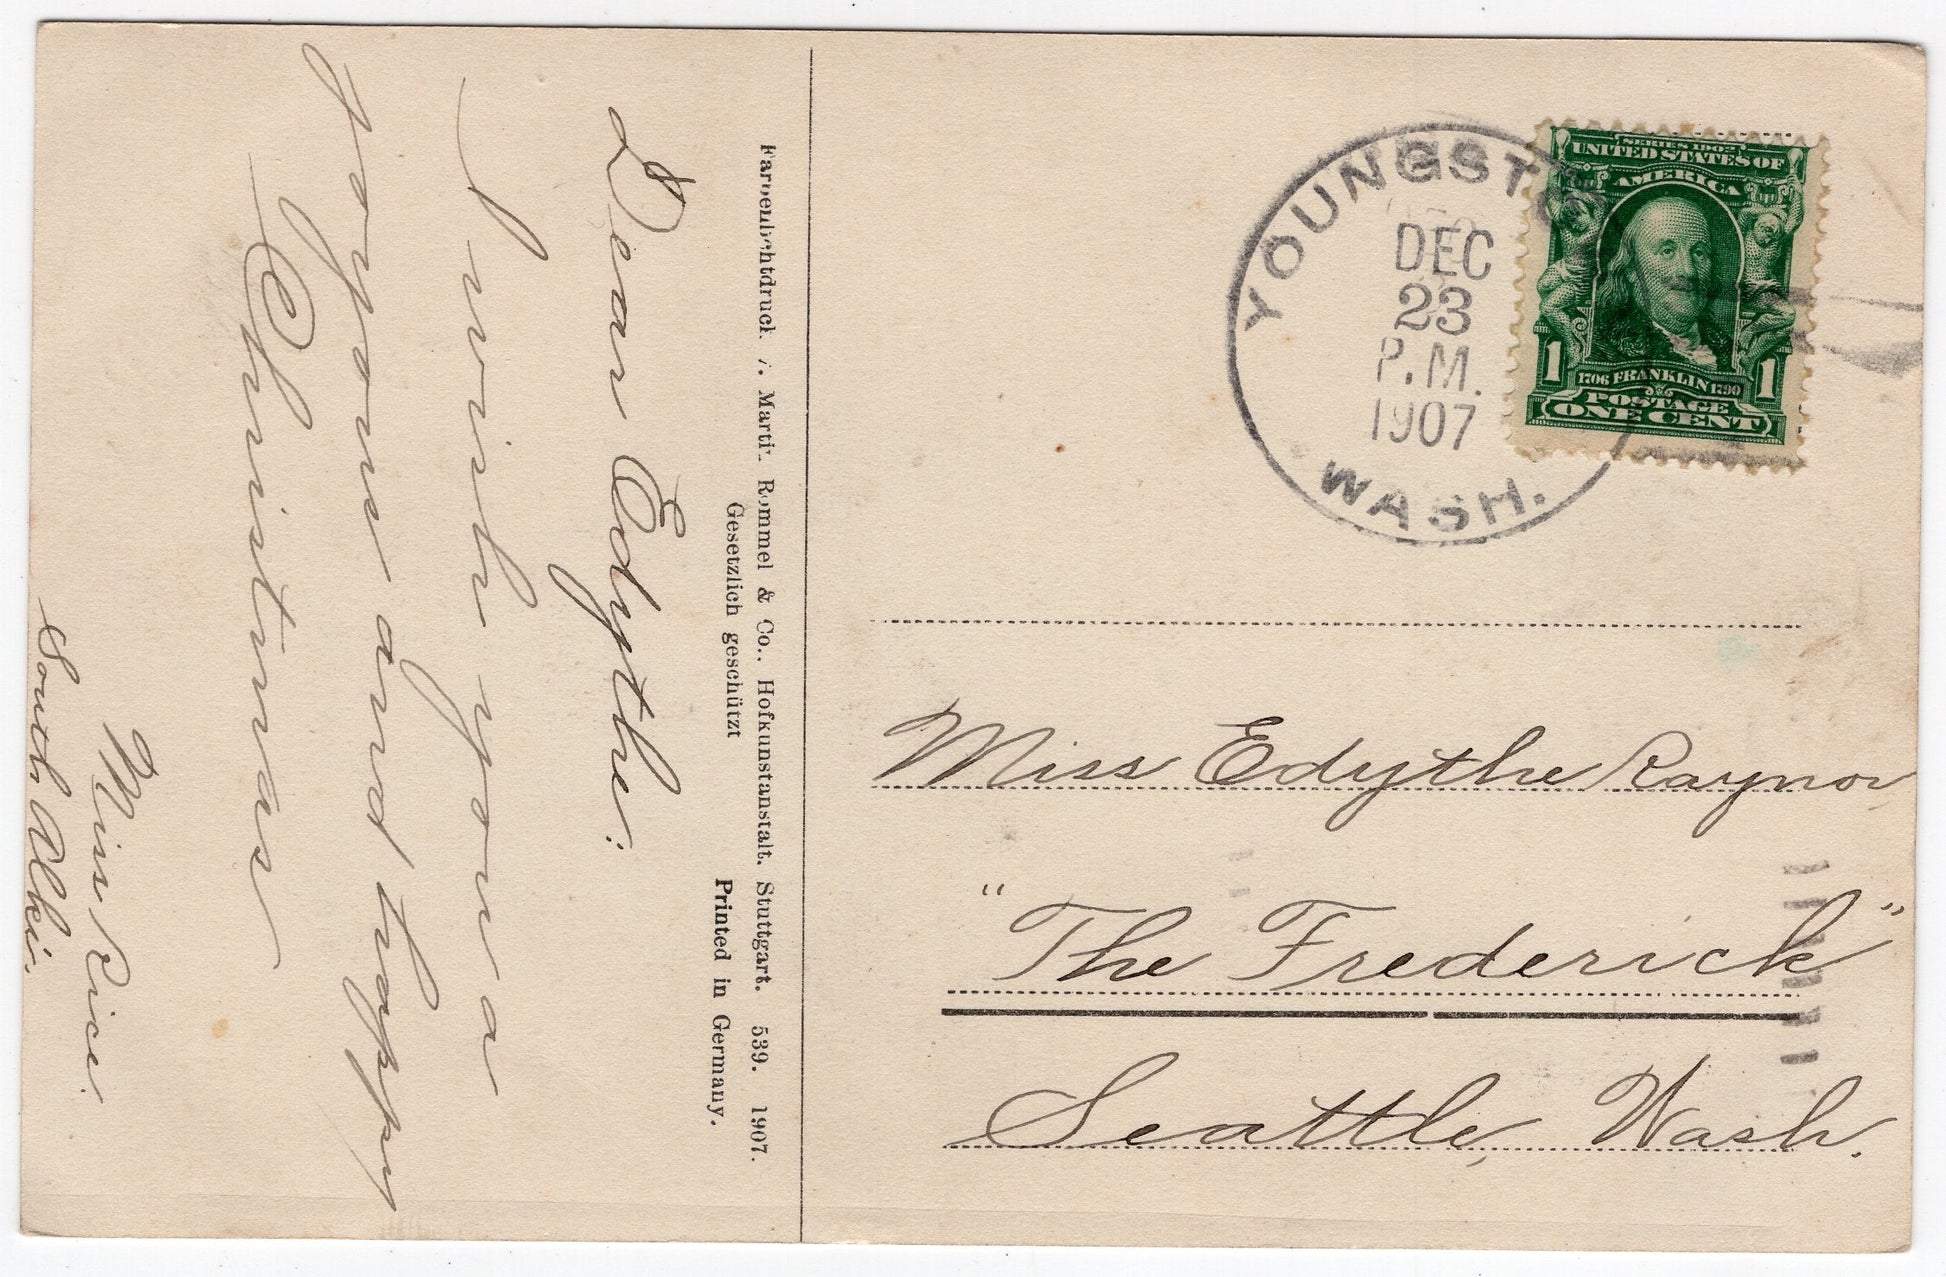 Dear Edythe:
I wish you a
joyous and happy
Christmas
Miss Rice.
South Alki.
Farbenlichtdruck v. Martin Rommel & Co., Hofkunstanstalt. Stuttgart. 539. 1907.
Gesetzlich geschützt
Printed in Germany.
YOUNGSTO
DEC
23
P.M.
1907
WASH.
SERIES 1902
UNITED STATES OF
AMERICA
1 1706 FRANKLIN 1790 1
POSTAGE
ONE CENT
Miss Edythe Raynor,
"The Frederick"
Seattle, Wash.